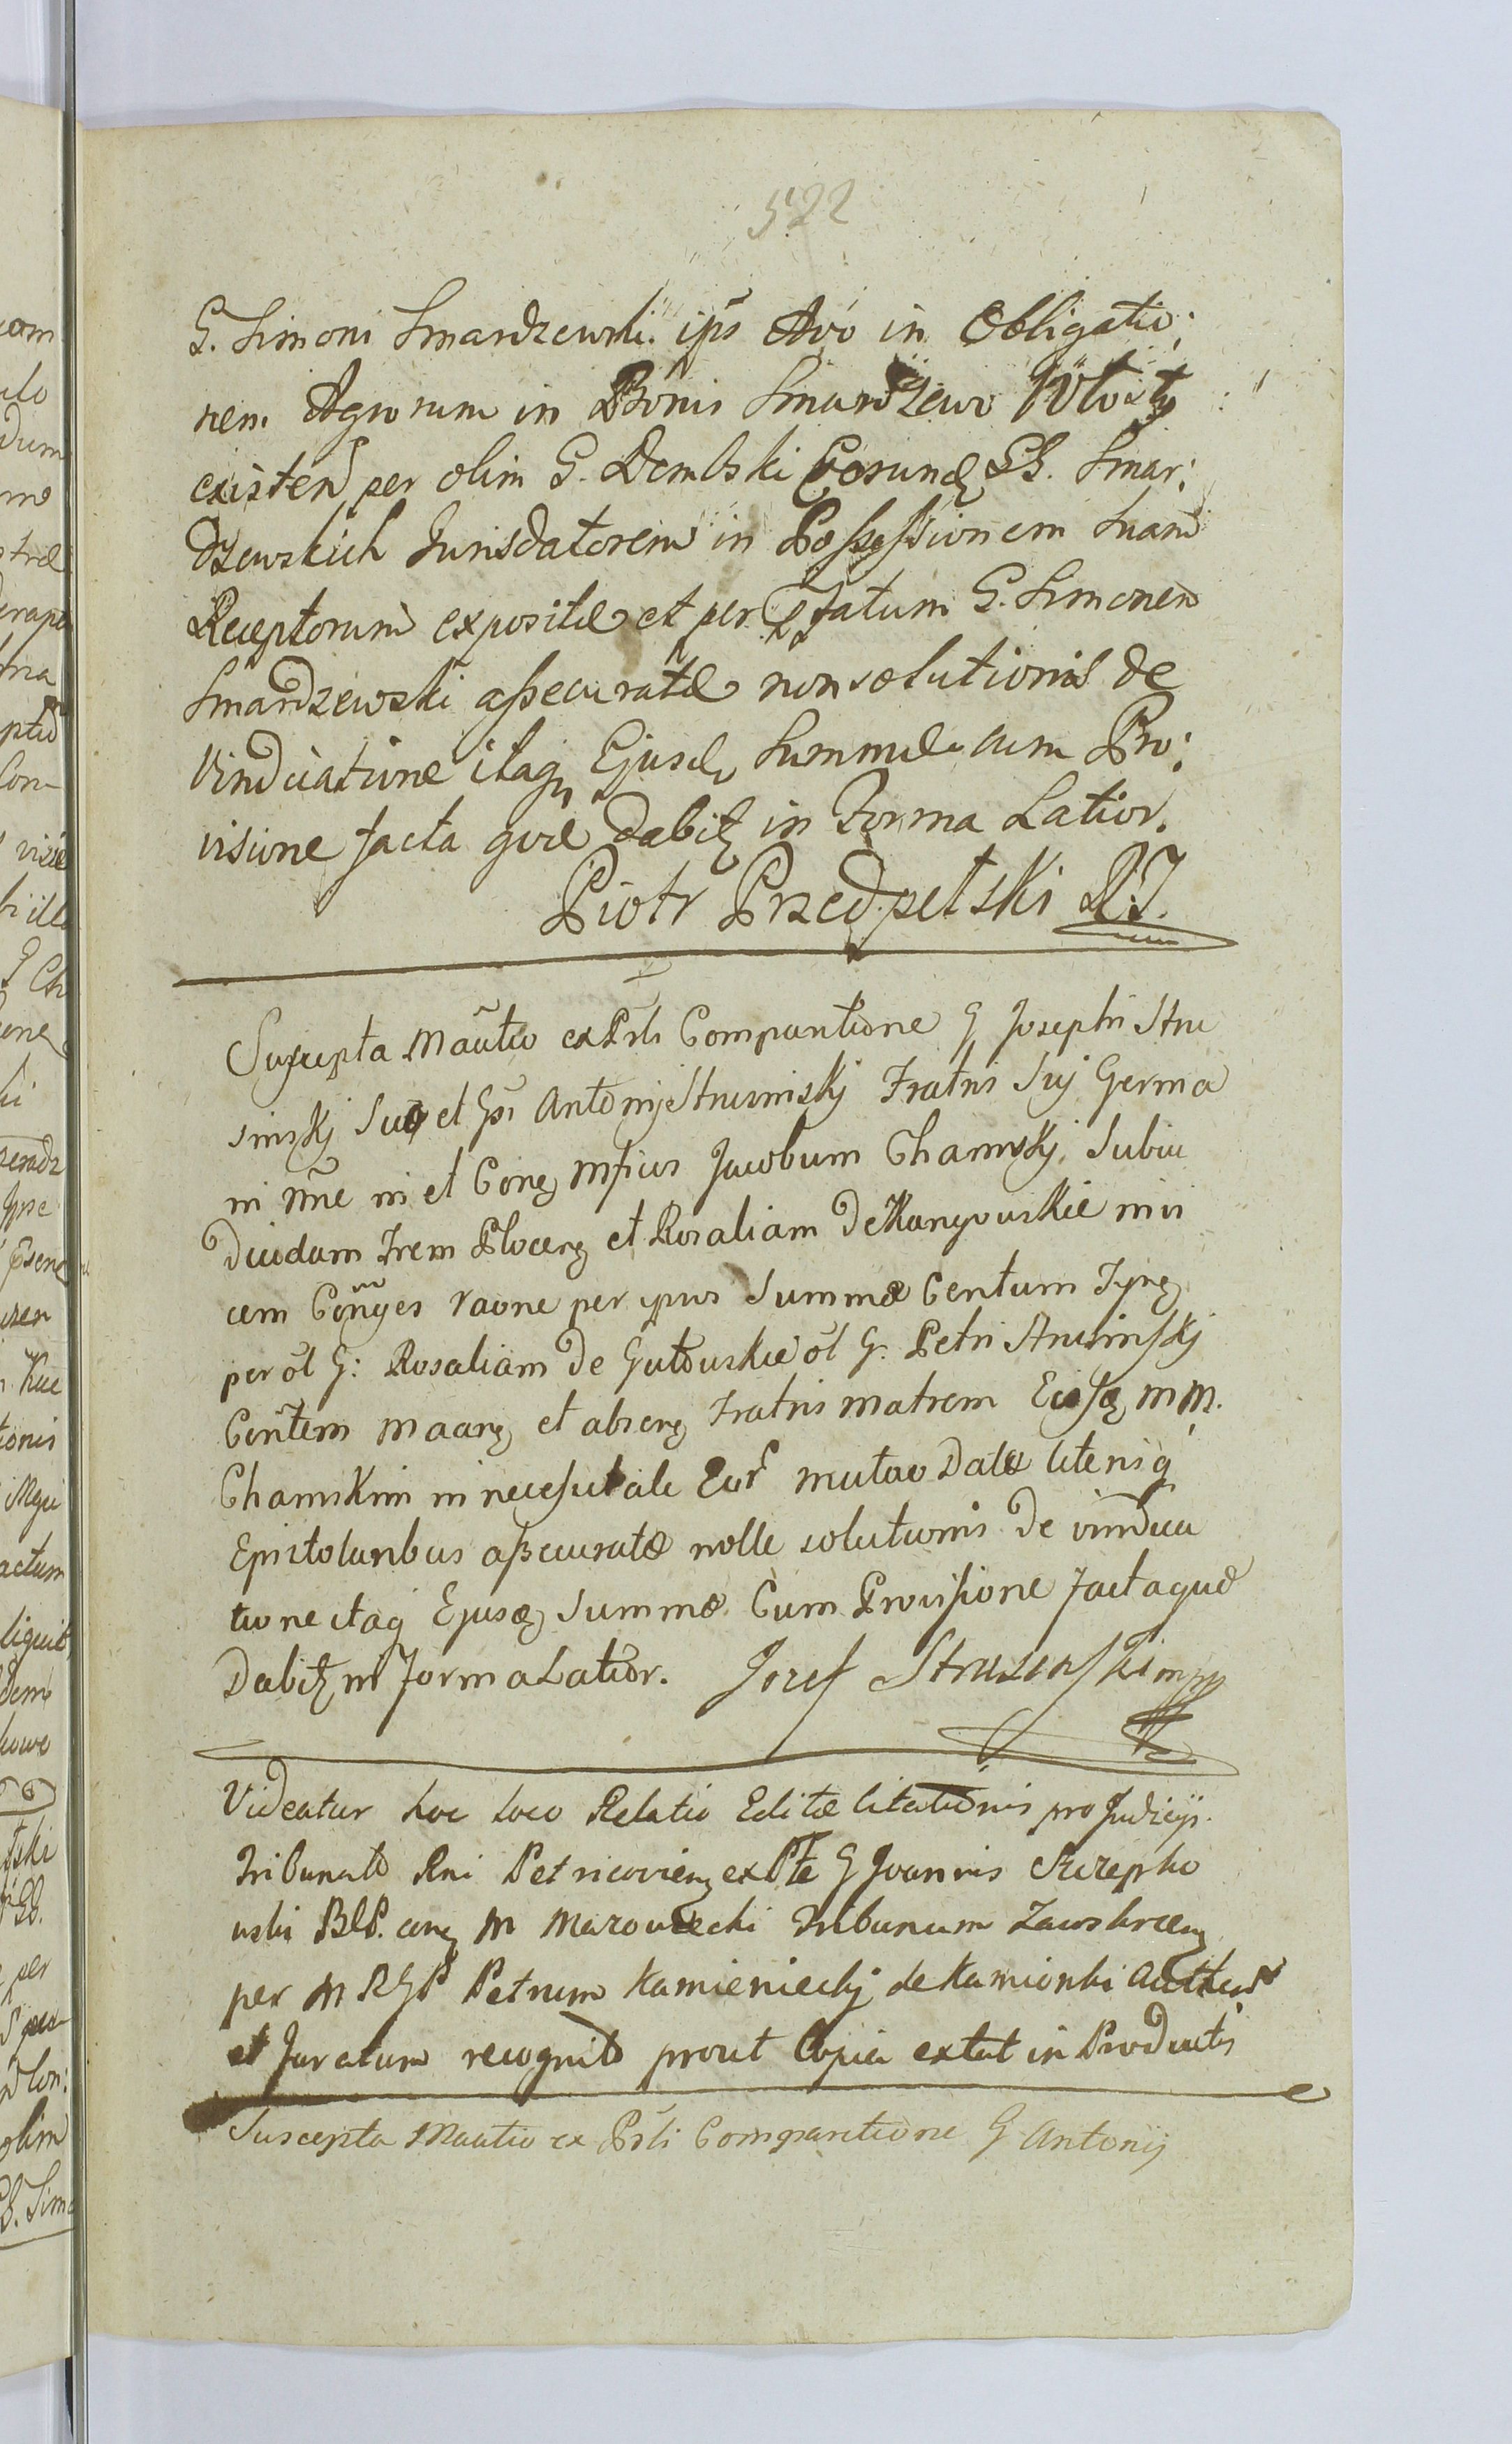 522
G. Simoni Smardzewski. ips Avo in Obligatio:
nem Agrorum in Bonis Smardzewo Włosty
existen per olim G. Dembski Eorund GG. Smar:
dzewskich Jurisdatorem in Possessionem Suam
Receptorum expositæ et per Pfatum G. Simonem
Smardzewski assecuratæ non solutionis de
Vindicatione itaq Ejusd Summæ cum Pro:
visione facta qvæ dabit in Forma Latior.
Piotr Przedpełski RJ.
Suscepta Mautio ex Psli Comparitione G Josephi Stru
sinskj Suo et Gsi Antonij Strusinskj Fratris Suj Germa
ni Nne ni et Conq Mficus Jacobum Chamskj Subiu
dicidam Trem Plocenq et Rosaliam de Kanigowskie invi
cem Conjges raone per ipsos Summæ Centum Tynq
per ol G: Rosaliam de Gutowskie ol G. Petri Strusinskj
Contem Maarq et absenq Fratris matrem Eisdq MM.
Chamskim in necessitate Eor mutuo Datæ literisq
Epistolaribus assecuratæ nolle solutionis de vindica
tione itaq Ejusdq Summæ Cum Provisione facta quæ
Dabit in Forma Latior. Jozef Strusinski mpp
Videatur hoc loco Relatio Editæ Citationis pro Judicijs
Tribunalis Rni Petricovienq ex Pte G Joannis Szczepko
wski BCP. conq M Mazowiecki Tribunum Zawskrzenq
per M RGP Petrum Kamienieckj de Kamionki Authent
et Juratum recognita prout Copia extat in Productis
Suscepta Mautio ex Psli Comparitione G Antonij